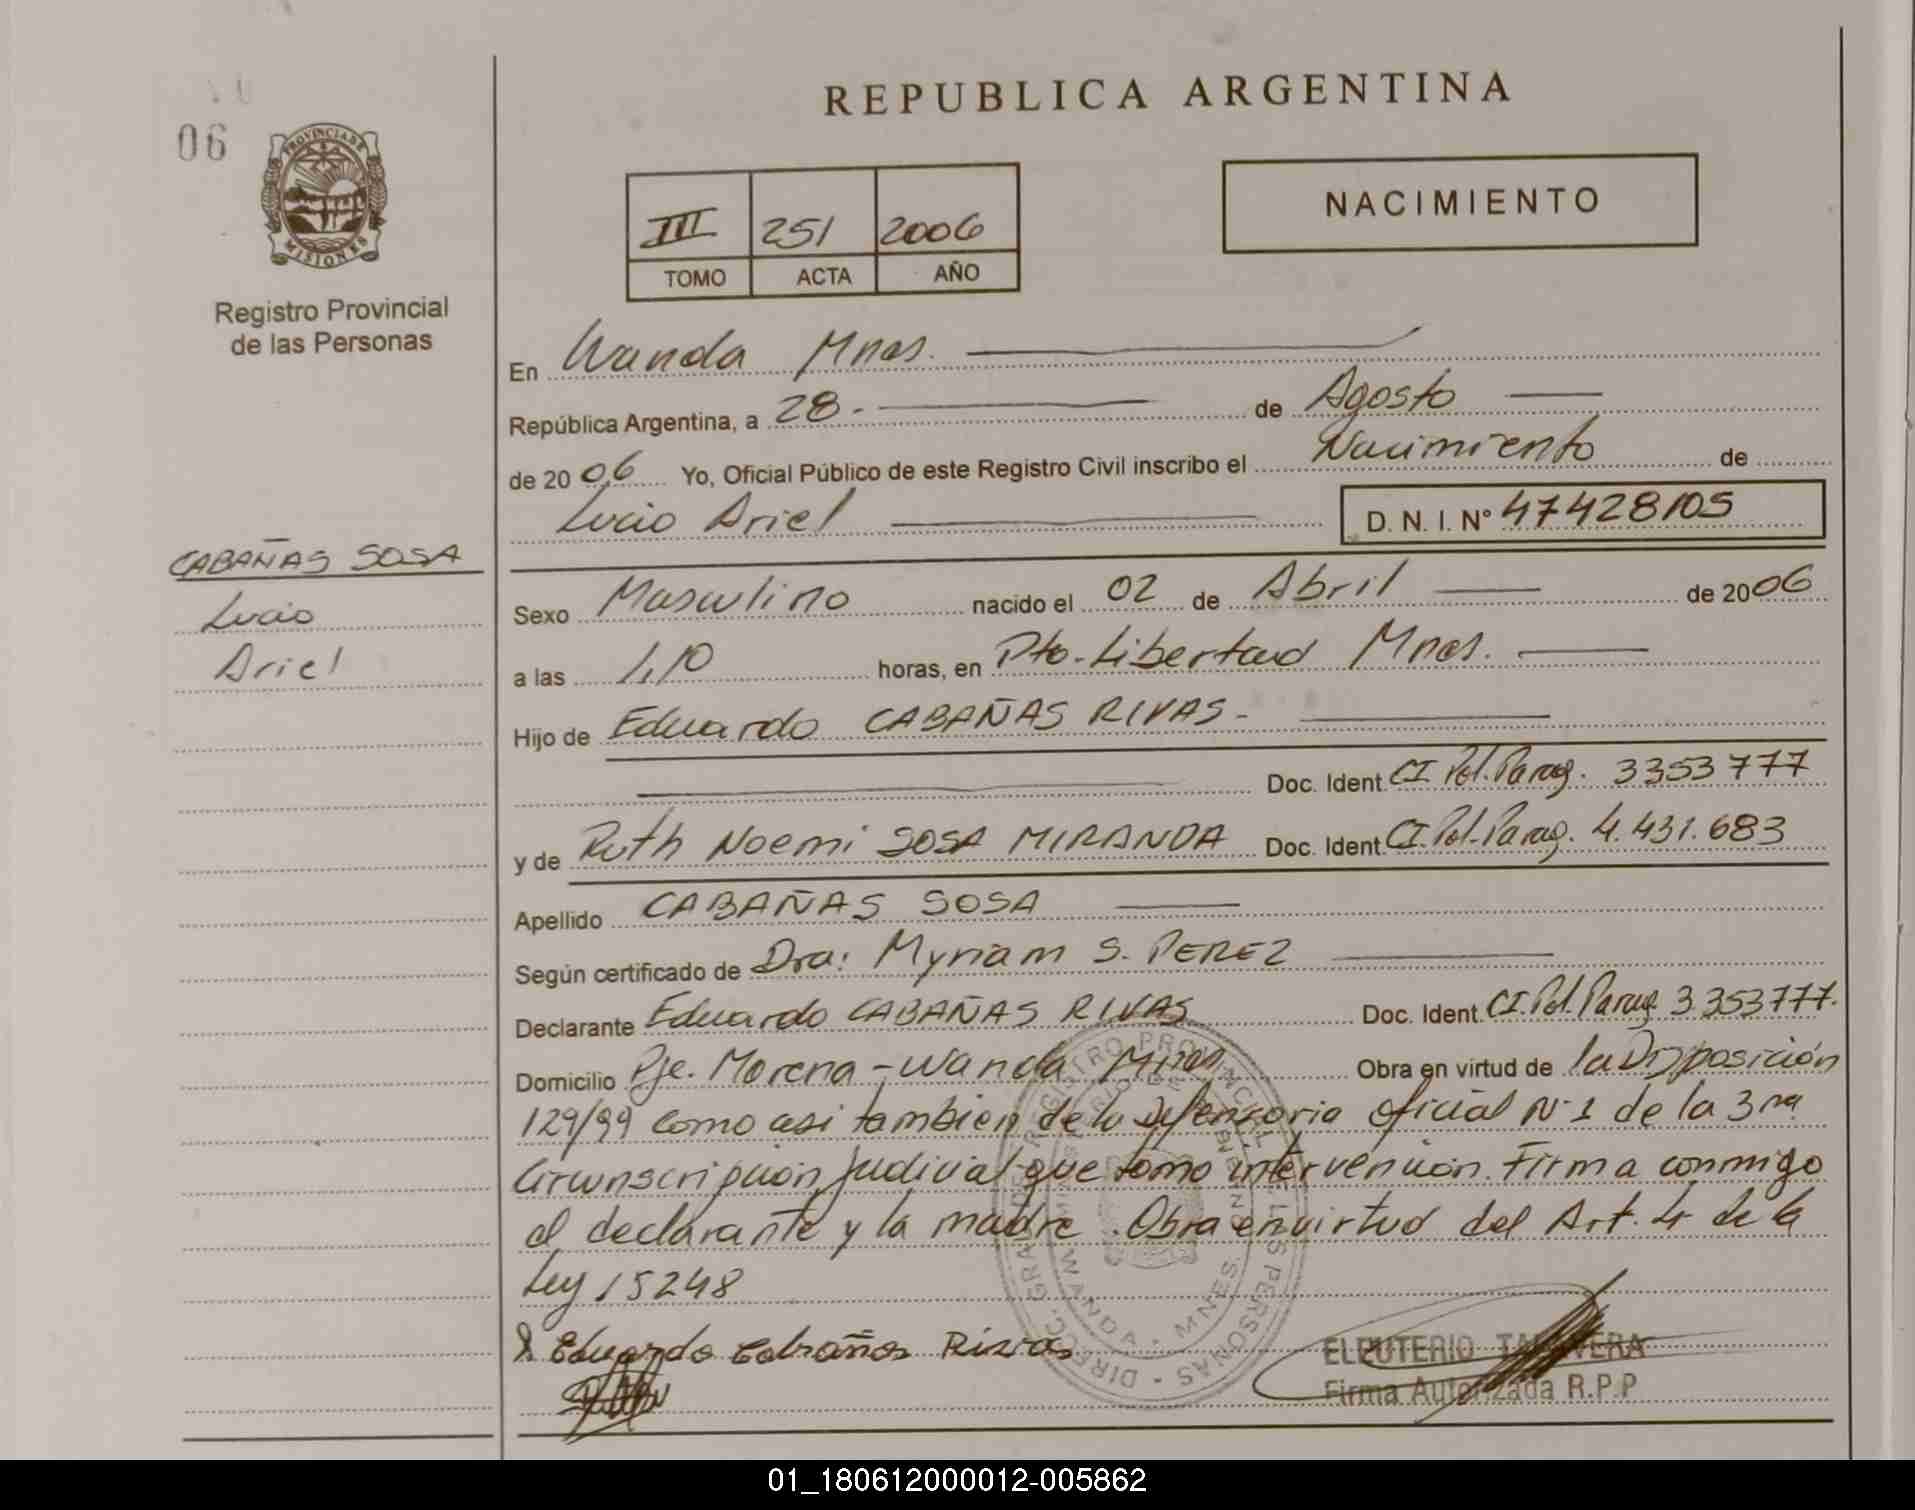 REPUBLICA ARGENTINA
06
PROVINCIA DE
MISIONES
Registro Provincial
de las Personas
III 251 2006
TOMO ACTA AÑO
NACIMIENTO
En Wanda Mnes.
República Argentina, a 28.- de Agosto
de 2006 Yo, Oficial Público de este Registro Civil inscribo el Nacimiento de
Lucio Ariel D. N. I. N° 47428105
CABAÑAS SOSA
Lucio
Ariel
Sexo Masculino nacido el 02 de Abril de 2006
a las 1,10 horas, en Pto. Libertad Mnes.
Hijo de Eduardo CABAÑAS RIVAS.-
Doc. Ident. CI Pol. Parag. 3353777
y de Ruth Noemi SOSA MIRANDA Doc. Ident. CI. Pol. Parag. 4.431.683
Apellido CABAÑAS SOSA
Según certificado de Dra: Myriam S. PEREZ
Declarante Eduardo CABAÑAS RIVAS Doc. Ident. CI. Pol. Parag. 3.353777.
Domicilio Pje. Morena - Wanda Mnes. Obra en virtud de la Disposición
129/99 como asi tambien de la Defensoria oficial N° 1 de la 3ra
Circunscripcion Judicial que tomo intervencion. Firma conmigo
el declarante y la madre. Obra en virtud del Art. 4 de la
Ley 15248
Eduardo Cabañas Rivas
DIRECC. GRAL. DE REGISTRO PROVINCIAL DE LAS PERSONAS
WANDA - MNES.
ELEUTERIO TALAVERA
Firma Autorizada R.P.P
01_180612000012-005862